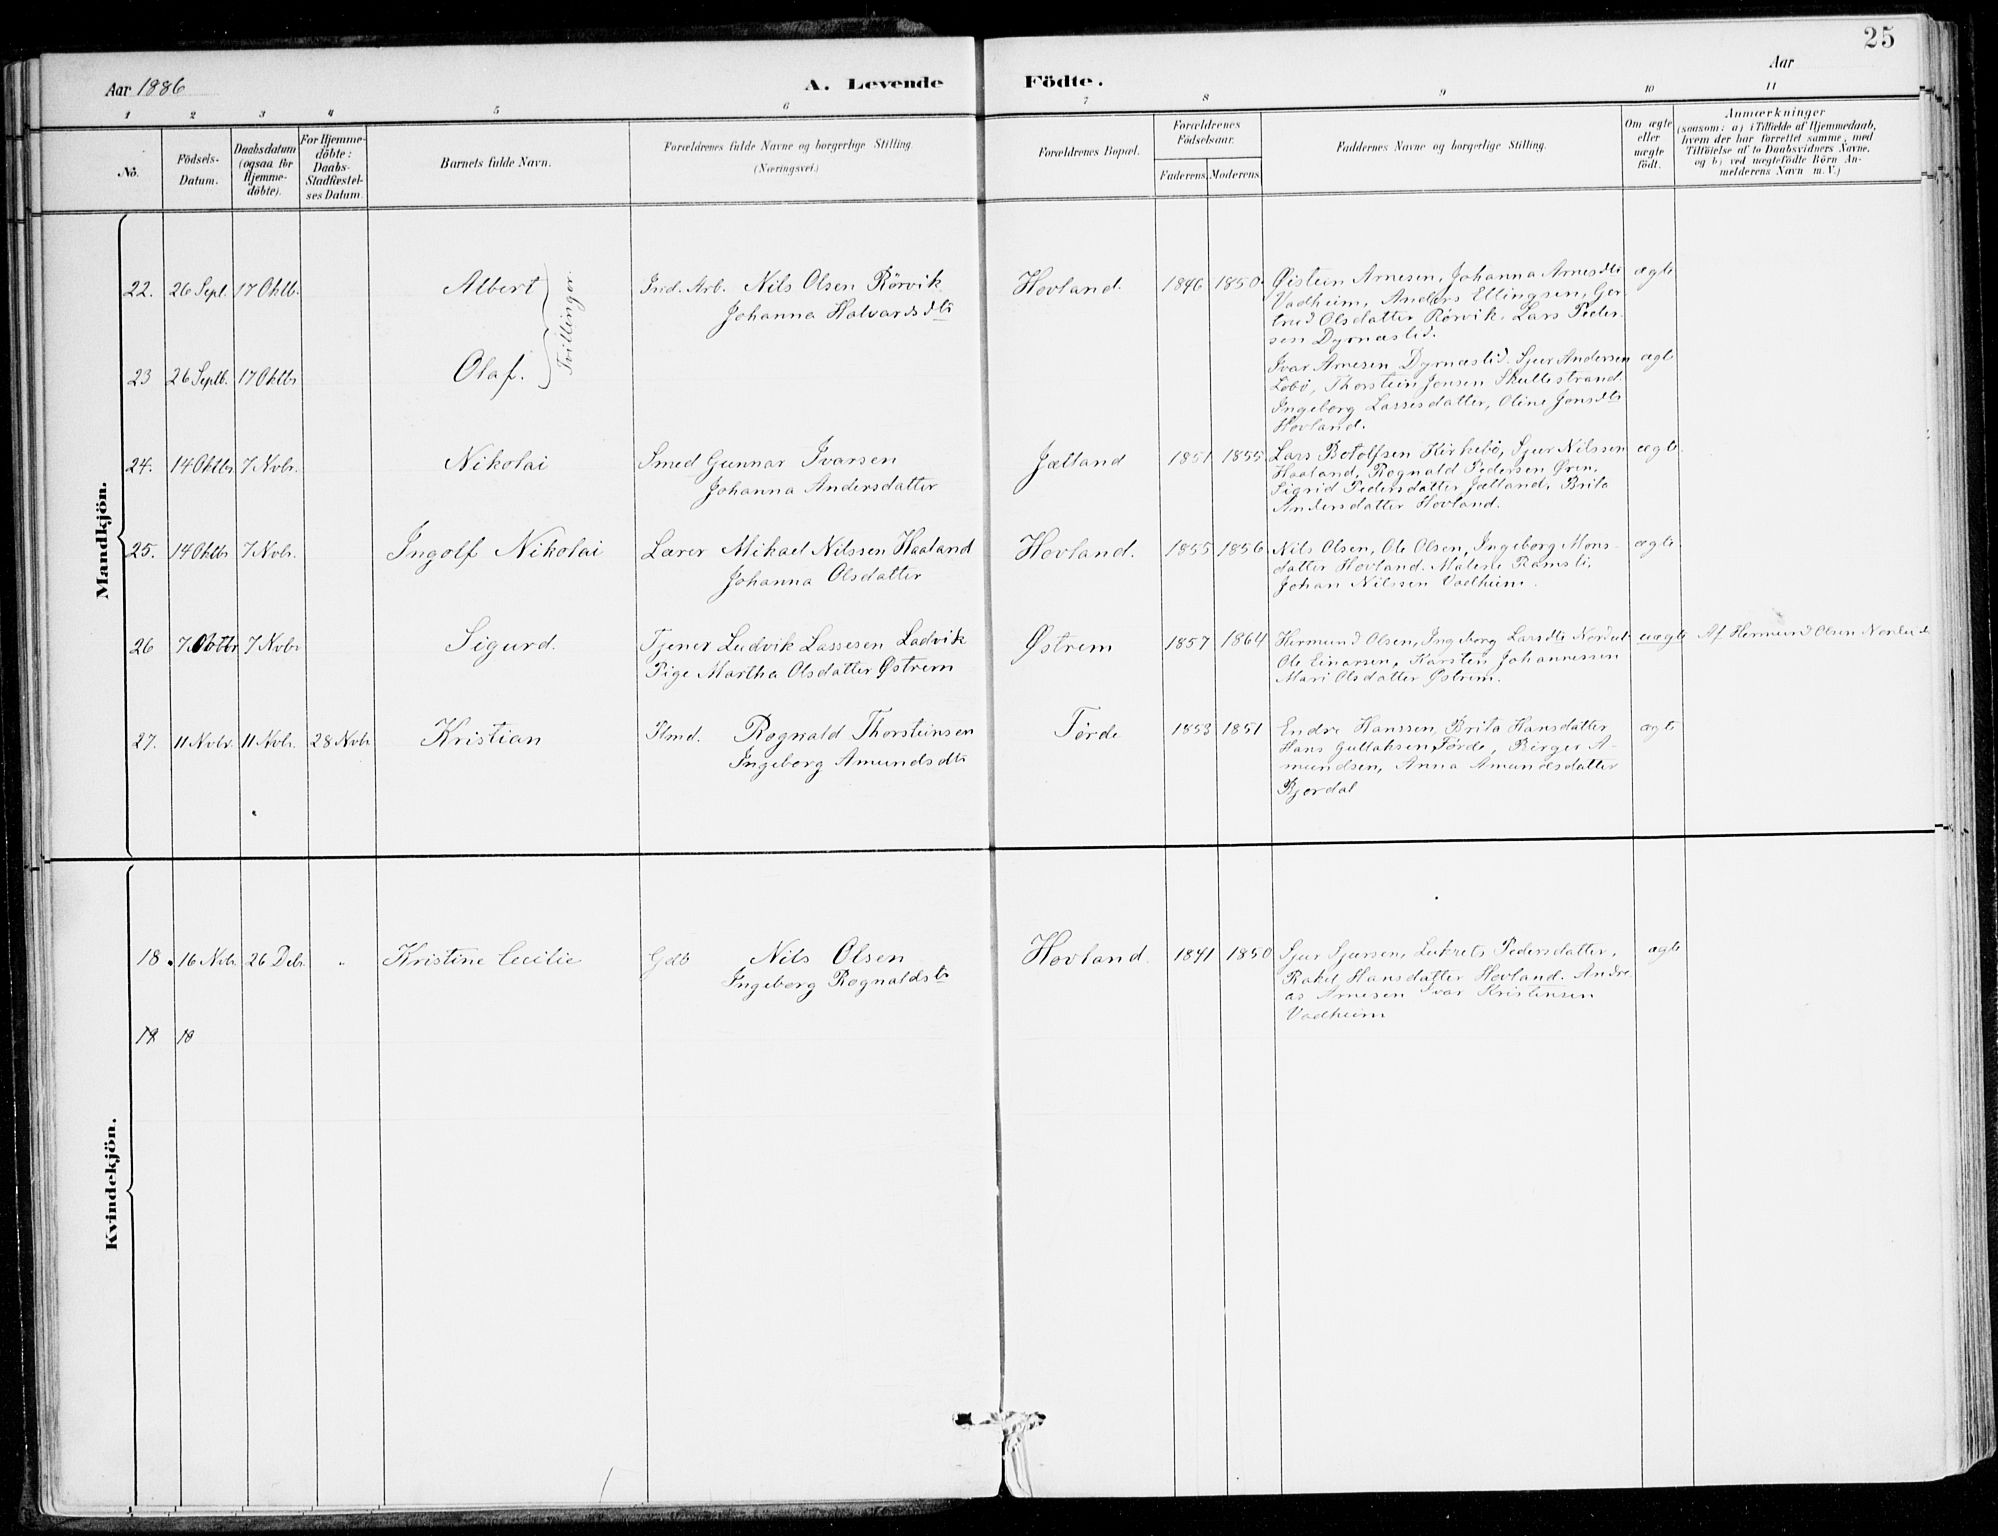 25
Aar 1886
A. Levende Födte.
Aar
1 2 3 4 5 6 7 8 9 10 11
No.
Födsels-
Datum.
Daabsdatum
(ogsaa for
Hjemme-
döbte).
For Hjemme-
döbte:
Daabs-
Stadfæstel-
ses Datum.
Barnets fulde Navn.
Forældrenes fulde Navne og borgerlige Stilling.
(Næringsvei.)
Forældrenes Bopæl.
Forældrenes
Födselsaar.
Faderens. Moderens.
Faddernes Navne og borgerlige Stilling.
Om ægte
eller
uægte
födt.
Anmærkninger
(saasom: a) i Tilfælde af Hjemmedaab,
hvem der har forrettet samme, med
Tilföielse af to Daabsvidners Navne,
og b) ved uægtefödte Börn An-
melderens Navn m. V.)
Mandkjön.
22. 26 Sept. 17 Oktb. Albert
Tvillinger.
Ind. Arb. Nils Olsen Rörvik
Johanna Halvardsdtr
Hovland. 1846 1850.
Øistein Arnesen, Johanna Arnesdtr
Vadheim, Anders Ellingsen, Ger-
trud Olsdatter Rørvik, Lars Peder-
sen Dyrnæslid.
ægte
23 26 Septb. 17 Oktbr Olaf.
Ivar Arnesen Dyrnæslid. Sjur Andersen
Lobø, Thorstein Jensen Skullestrand.
Ingeborg Lassesdatter, Oline Jonsdtr
Hovland.
ægte
24. 14 Oktbr 7 Nvbr. Nikolai
Smed Gunnar Ivarsen
Johanna Andersdatter
Jælland 1851 1855
Lars Botolfsen Kirkebø, Sjur Nilssen
Haaland, Rognald Pedersen Øren,
Sigrid Pedersdatter Jælland, Brita
Andersdatter Hovland.
ægte
25. 14 Oktbr 7 Nvbr. Ingolf Nikolai
Lærer Mikael Nilssen Haaland
Johanna Olsdatter
Hovland. 1855 1856
Nils Olsen, Ole Olsen, Ingeborg Mons-
datter Hovland. Malene Ramsli,
Johan Nilssen Vadheim.
ægte
26 7 Oktbr 7 Nvbr Sigurd.
Tjener Ludvik Lassesen Ladvik
Pige Martha Olsdatter Østrem
Østrem 1857 1864
Hermund Olsen, Ingeborg Larsdtr
Ole Einarsen, Karsten Johannessen
Mari Olsdatter Østrem.
uægte Af Hermund Olsen
27. 11 Nvbr. 11 Nvbr. 28 Nvbr. Kristian
Rognald Thorsteinsen
Ingeborg Amundsdtr
Førde 1853 1851
Endre Hanssen, Brita Hansdatter
Hans Gullaksen Førde, Birger A-
mundsen, Anna Amundsdatter
Bjordal
ægte
Kvindekjön.
18. 16 Nvbr. 26 Debr. Kristine Cecilie
Gdb Nils Olsen
Ingeborg Rognaldsdtr
Hovland. 1841 1850
Sjur Sjursen, Lukrets Pedersdatter,
Rakel Hansdatter Hovland. Andre-
as Arnesen Ivar Kristensen
Vadheim
ægte
19 18